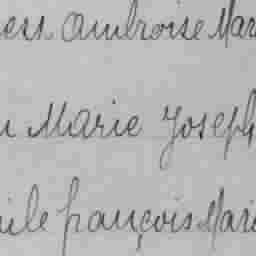 Ambroise Mar
Marie Joseph
françois Mari